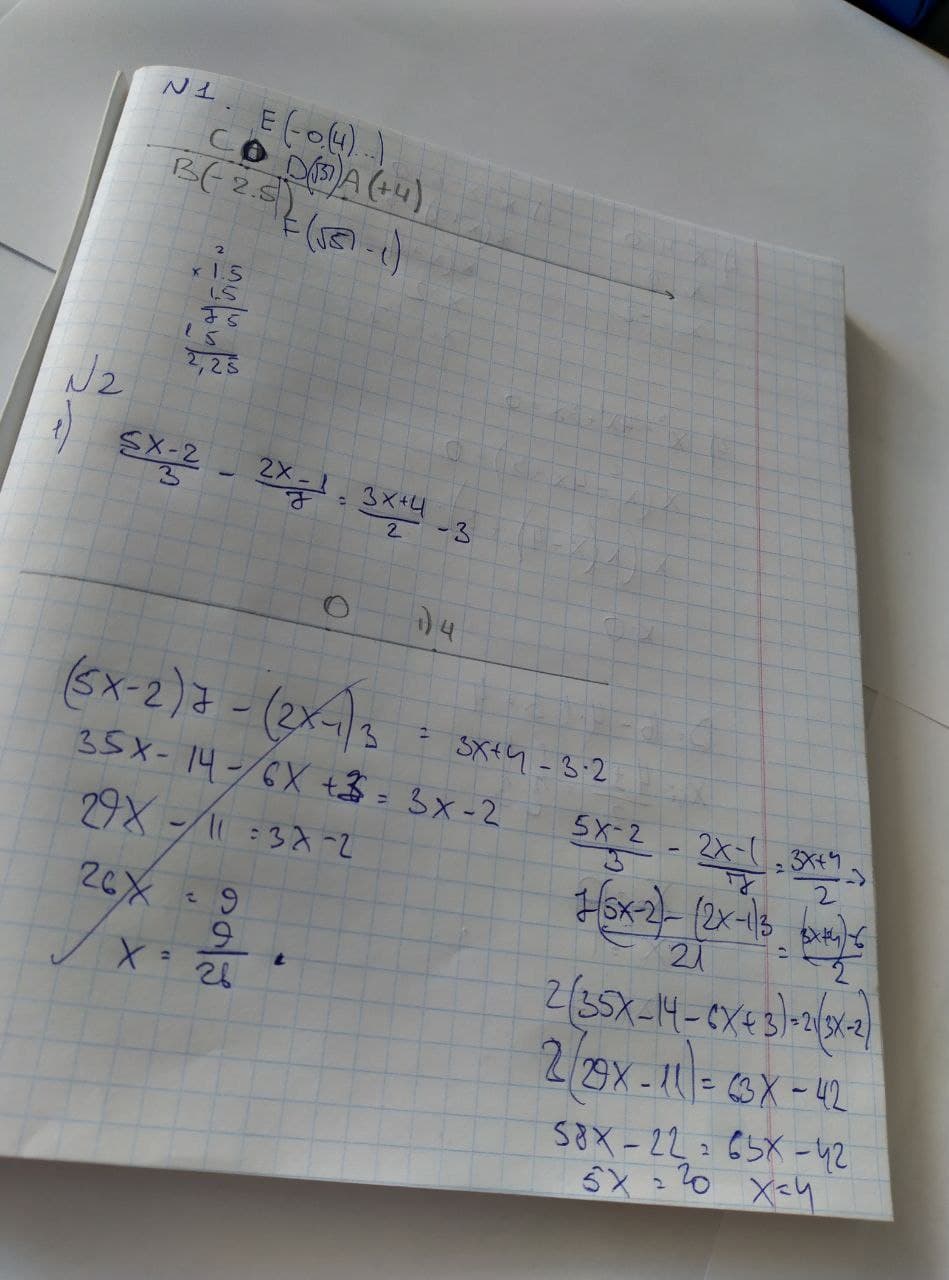 N1.
E(-0,(4)...)
C 0 D(√3) A(+4)
B(-2.5)
F(√5 - 1)
2
× 1.5
1.5
7 5
1 5
2,25
N2
1)
(5x-2)/3 - (2x-1)/7 = (3x+4)/2 - 3
0 1) 4
(5x-2)7 - (2x-1)3 = 3x+4 - 3·2
35x - 14 - 6x + 3 = 3x - 2
29x - 11 = 3x - 2
26x = 9
x = 9/26 .
(5x-2)/3 - (2x-1)/7 = (3x+4)/2 →
(7(5x-2) - (2x-1)3)/21 = ((3x+4)-6)/2
2(35x-14-6x+3)=21(3x-2)
2(29x-11) = 63x - 42
58x - 22 = 63x - 42
5x = 20 x=4